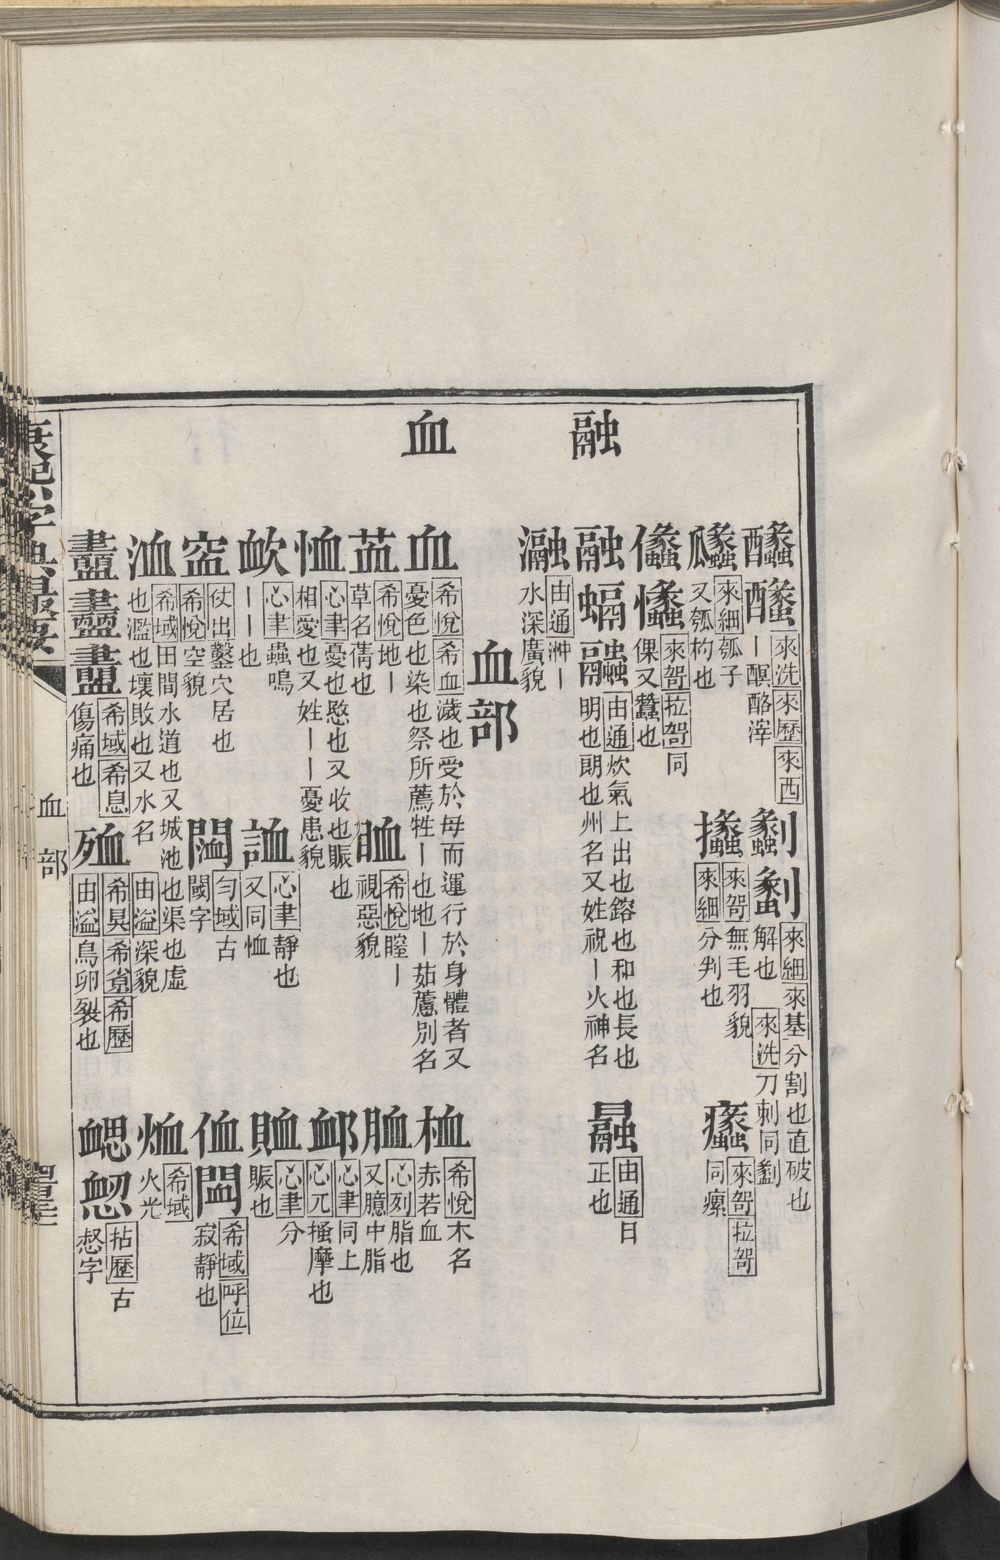 融
血
來洗來歷來西
丨醭酪滓
劙
來細來基分割也直破也
解也來洗刀刺同劙
瓥
來細瓠子
又瓠杓也
來哿無毛羽貌
來細分判也
來哿拉哿
同瘰
來哿拉哿同
倮又蠚也
融螎
由通炊氣上出也鎔也和也長也
明也朗也州名又姓祝丨火神名
由通日
正也
瀜
由通沖丨
水深廣貌
血部
血
希悅希血濊也受於母而運行於身體者又
憂色也染也祭所薦牲丨也地丨茹藘別名
桖
希悅木名
赤若血
希悅地丨
草名蒨也
希悅瞠丨
視惡貌
心列脂也
又臆中脂
恤
心聿憂也愍也又收也賑也
相愛也又姓丨丨憂患貌
卹
心聿同上
心兀搔摩也
心聿蟲鳴
丨丨也
心聿靜也
又同恤
賉
心聿分
賑也
仗出鑿穴居也
希悅空貌
勻域古
閾字
侐
希域呼位
寂靜也
洫
希域田間水道也又城池也渠也虛
也濫也壞敗也又水名
由溢深貌
希域
火光
衋
希域希息
傷痛也
殈
希昊希狊希歷
由溢鳥卵裂也
拈歷古
惄字
康熙字典撮要
血部